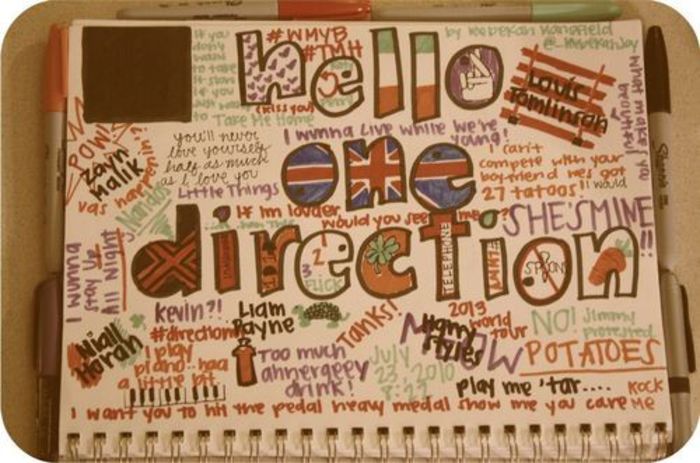 #WMYB
#TMH
hello
by Rebekah Mansfield
If you
don't
wanna
to take
it slow
if you
just wanna
to Take Me Home
Katy
Perry
(kiss you)
Louis
Tomlinson
what makes you
beautiful
POW!
Zayn
Malik
vas happenin?!
Nandos
you'll never
love yourself
half as much
as I love you
Little Things
I wanna live while we're
young!
I can't
compete with your
boyfriend hes got
27 tatoos!!
one
If im louder
would you see me?
SHE'S MINE
!!
direction
FLICK
TELEPHONE
SPOON
I wanna
stay up
All Night
Kevin?!
#directioners
Liam
Payne
Tanks!
2013
world
tour
Harry
Styles
MEOW
NO! Jimmy
protested
POTATOES
Niall
Horan
I play
piano..haa
a little bit
Too much
ahnergeey
drink!
July
23, 2010
8:22
play me 'tar....
I want you to hit the pedal heavy medal show me you care
ROCK
ME